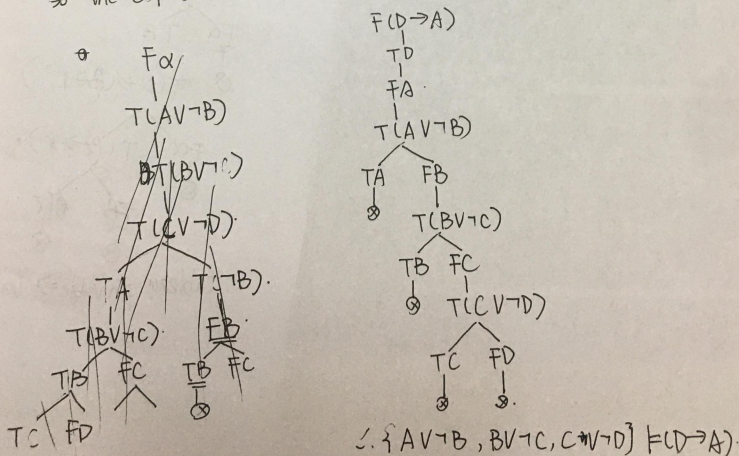 so the
Fα
T(A∨¬B)
T(B∨¬C)
T(C∨¬D)
TA T(¬B)
T(B∨¬C) FB
TB FC TB FC
⊗
TC FD
F(D→A)
TD
FA
T(A∨¬B)
TA FB
⊗ T(B∨¬C)
TB FC
⊗ T(C∨¬D)
TC FD
⊗ ⊗
∴ {A∨¬B, B∨¬C, C∨¬D} ⊨ (D→A)